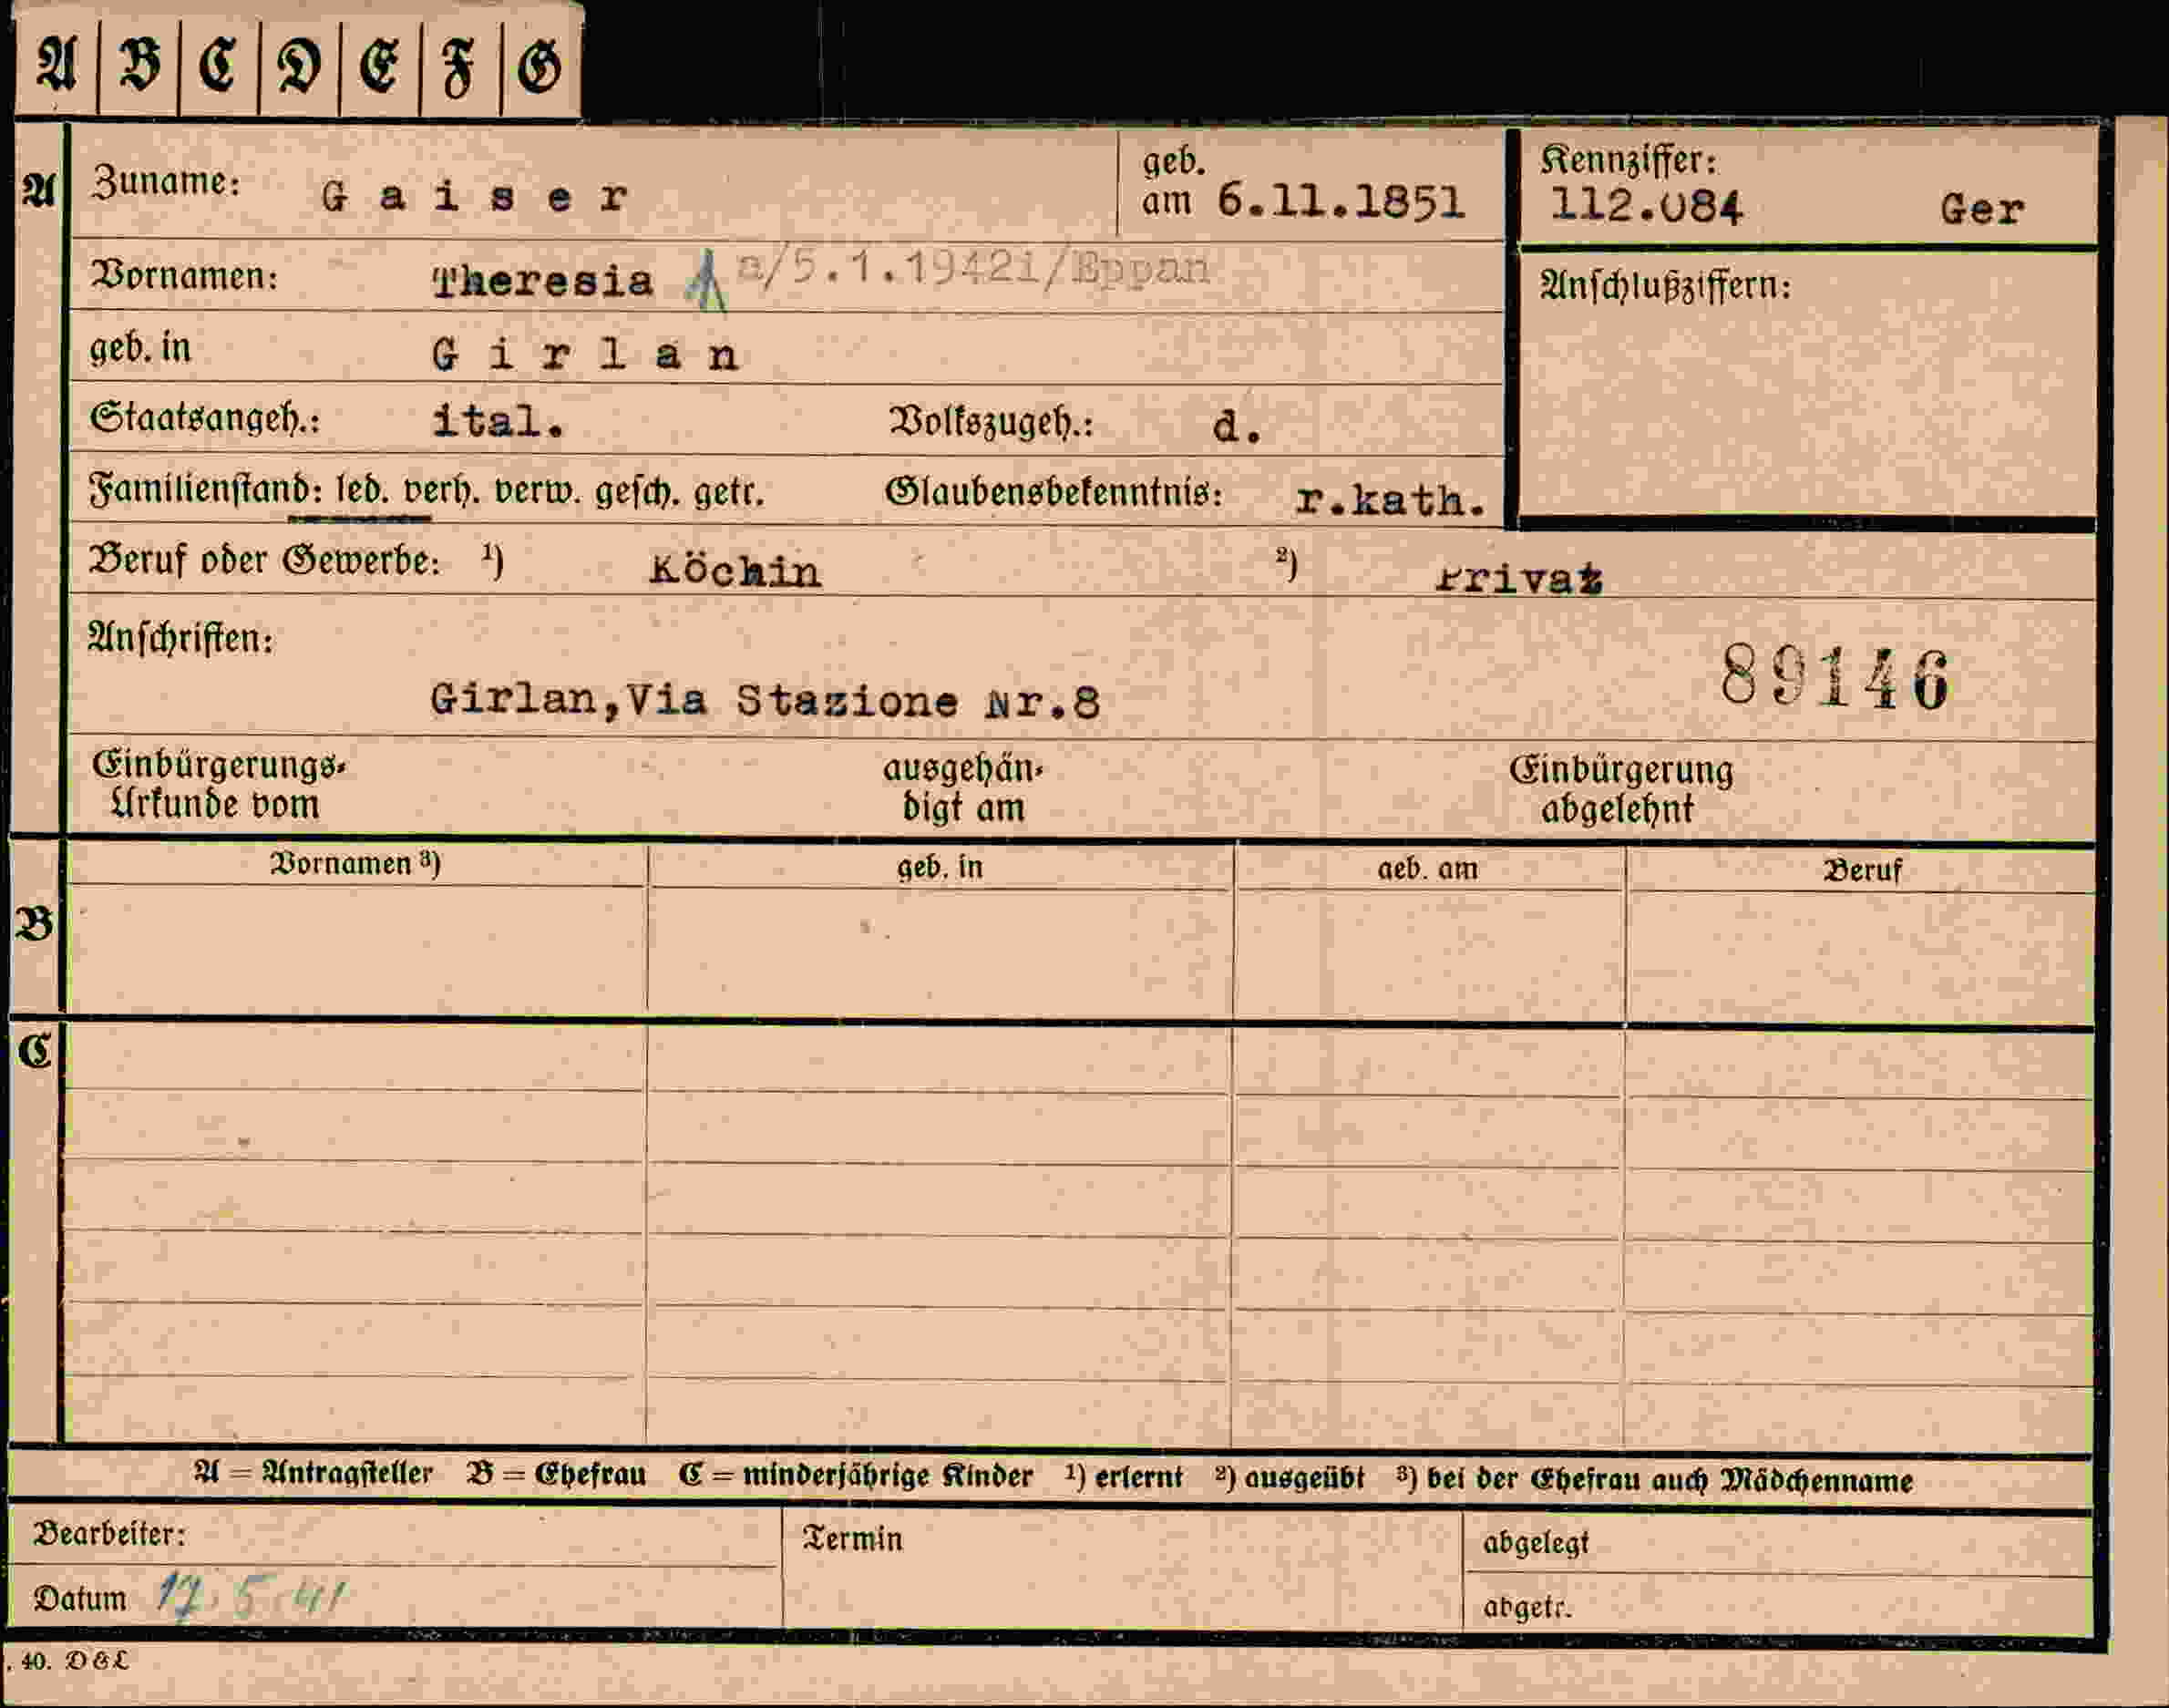 A B C D E F G
A Zuname: Gaiser geb. am 6.11.1851 Kennziffer: 112.084 Ger
Vornamen: Theresia /5.1.1942i/Eppan Anschlußziffern:
geb. in Girlan
Staatsangeh.: ital. Volkszugeh.: d.
Familienstand: led. verh. verw. gesch. getr. Glaubensbekenntnis: r.kath.
Beruf oder Gewerbe: ¹) Köchin ²) Privat
Anschriften:
89146
Girlan,Via Stazione Nr.8
Einbürgerungs- Urkunde vom ausgehän- digt am Einbürgerung abgelehnt
Vornamen ³) geb. in geb. am Beruf
B
C
A = Antragsteller B = Ehefrau C = minderjährige Kinder ¹) erlernt ²) ausgeübt ³) bei der Ehefrau auch Mädchenname
Bearbeiter: Termin abgelegt
Datum 17.5.41 abgetr.
. 40. D & L